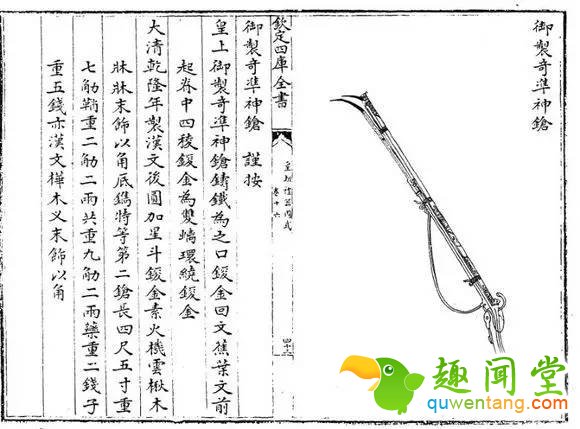 御製奇準神鎗
欽定四庫全書
皇朝禮器圖式
卷十六
御製奇準神鎗 謹按
皇上御製奇準神鎗鑄鐵為之口鋄金回文蕉葉文前
起脊中四稜鋄金為雙螭環繞鋄金
大清乾隆年製漢文後圓加星斗鋄金素火機雲楸木
牀牀末飾以角底鐫特等第二鎗長四尺五寸重
七觔鞘重二觔二兩共重九觔二兩藥重二錢子
重五錢亦漢文樺木义末飾以角
趣闻堂
quwentang.com